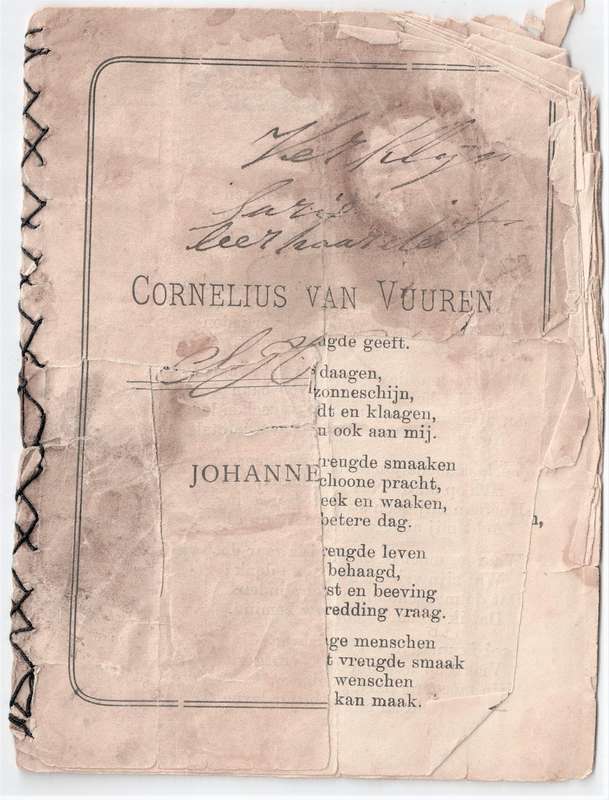 CORNELIUS VAN VUUREN
agde geeft.
daagen,
zonneschijn,
dt en klaagen,
u ook aan mij.
JOHANNE
reugde smaaken
choone pracht,
eek en waaken,
betere dag.
n,
reugde leven
behaagd,
rst en beeving
redding vraag.
nge menschen
t vreugde smaak
wenschen
kan maak.